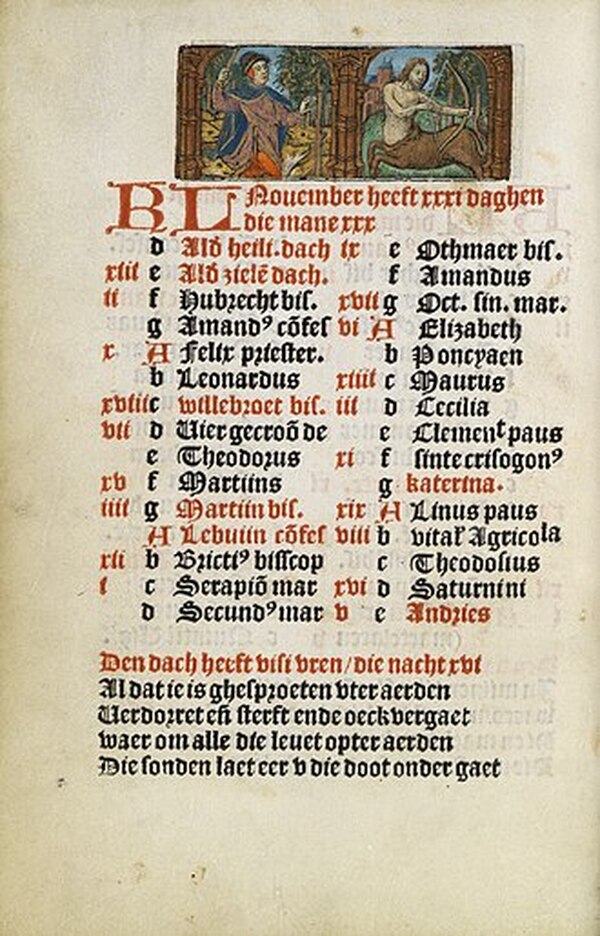 KL Nouember heeft xxxi daghen
die mane xxx
d Alð heili. dach
xiii e Alð zielē dach.
ii f Hubrecht bis.
g Amandꝰ cōfes
x A Felix priester.
b Leonardus
xviii c willebroet bis.
vii d Uier gecroō de
e Theodorus
xv f Martiins
iiii g Martiin bis.
A Lebuiin cōfes
xii b Brictiꝰ bisscop
i c Serapiō mar
d Secundꝰ mar
ix e Othmaer bis.
f Amandus
xvii g Oct. sin. mar.
vi A Elizabeth
b Poncyaen
xiiii c Maurus
iii d Cecilia
e Clement paus
xi f sinte crisogonꝰ
g katerina.
xix A Linus paus
viii b vital' Agricola
c Theodosius
xvi d Saturnini
v e Andries
Den dach heeft viii vren / die nacht xvi
Al dat ie is ghesproeten vter aerden
Uerdorret eñ sterft ende oeck vergaet
waer om alle die leuet opter aerden
Die sonden laet eer v die doot onder gaet